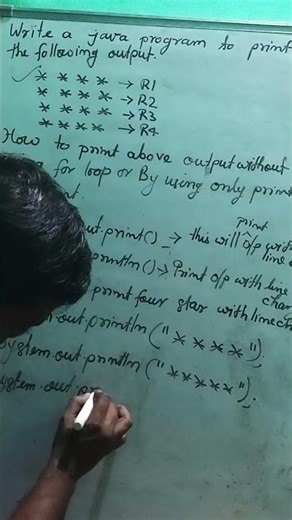 Write a java program to print
the following output.
* * * * → R1
* * * * → R2
* * * * → R3
* * * * → R4
How to print above output without
for loop or By using only print
out.print() → this will print o/p
println() → Print o/p with line
print four star with line
out.println("* * * *");
System.out.println("* * * * *");
System.out.